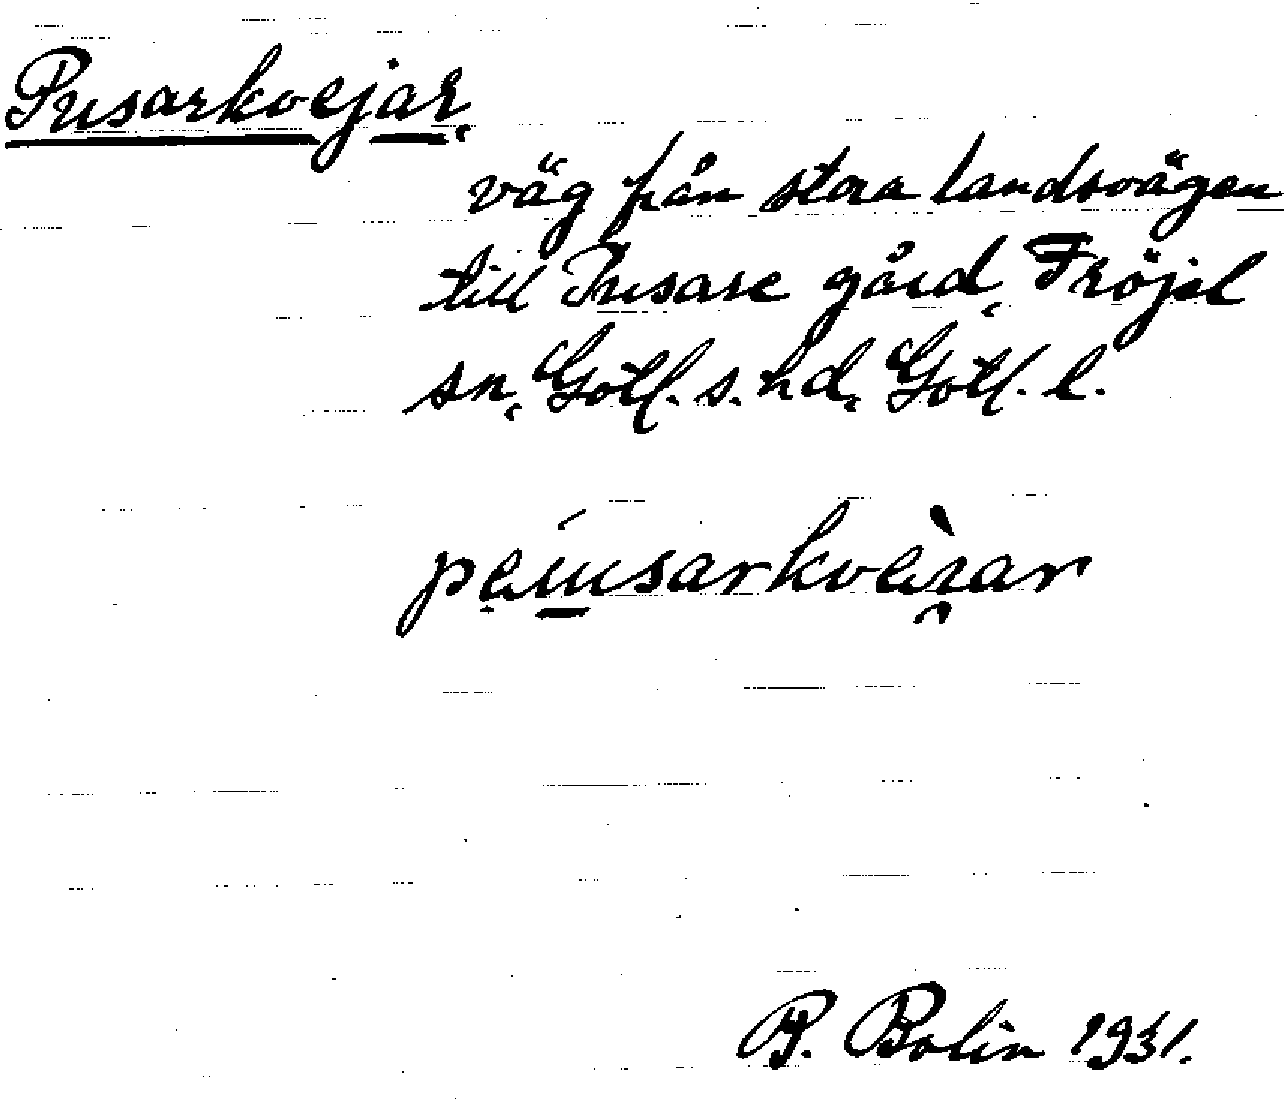 Pusarkvejar,
väg från stora landsvägen
till Pusare gård, Fröjel
sn, Gotl. s. hd, Gotl. l.
P. Bolin 1931.